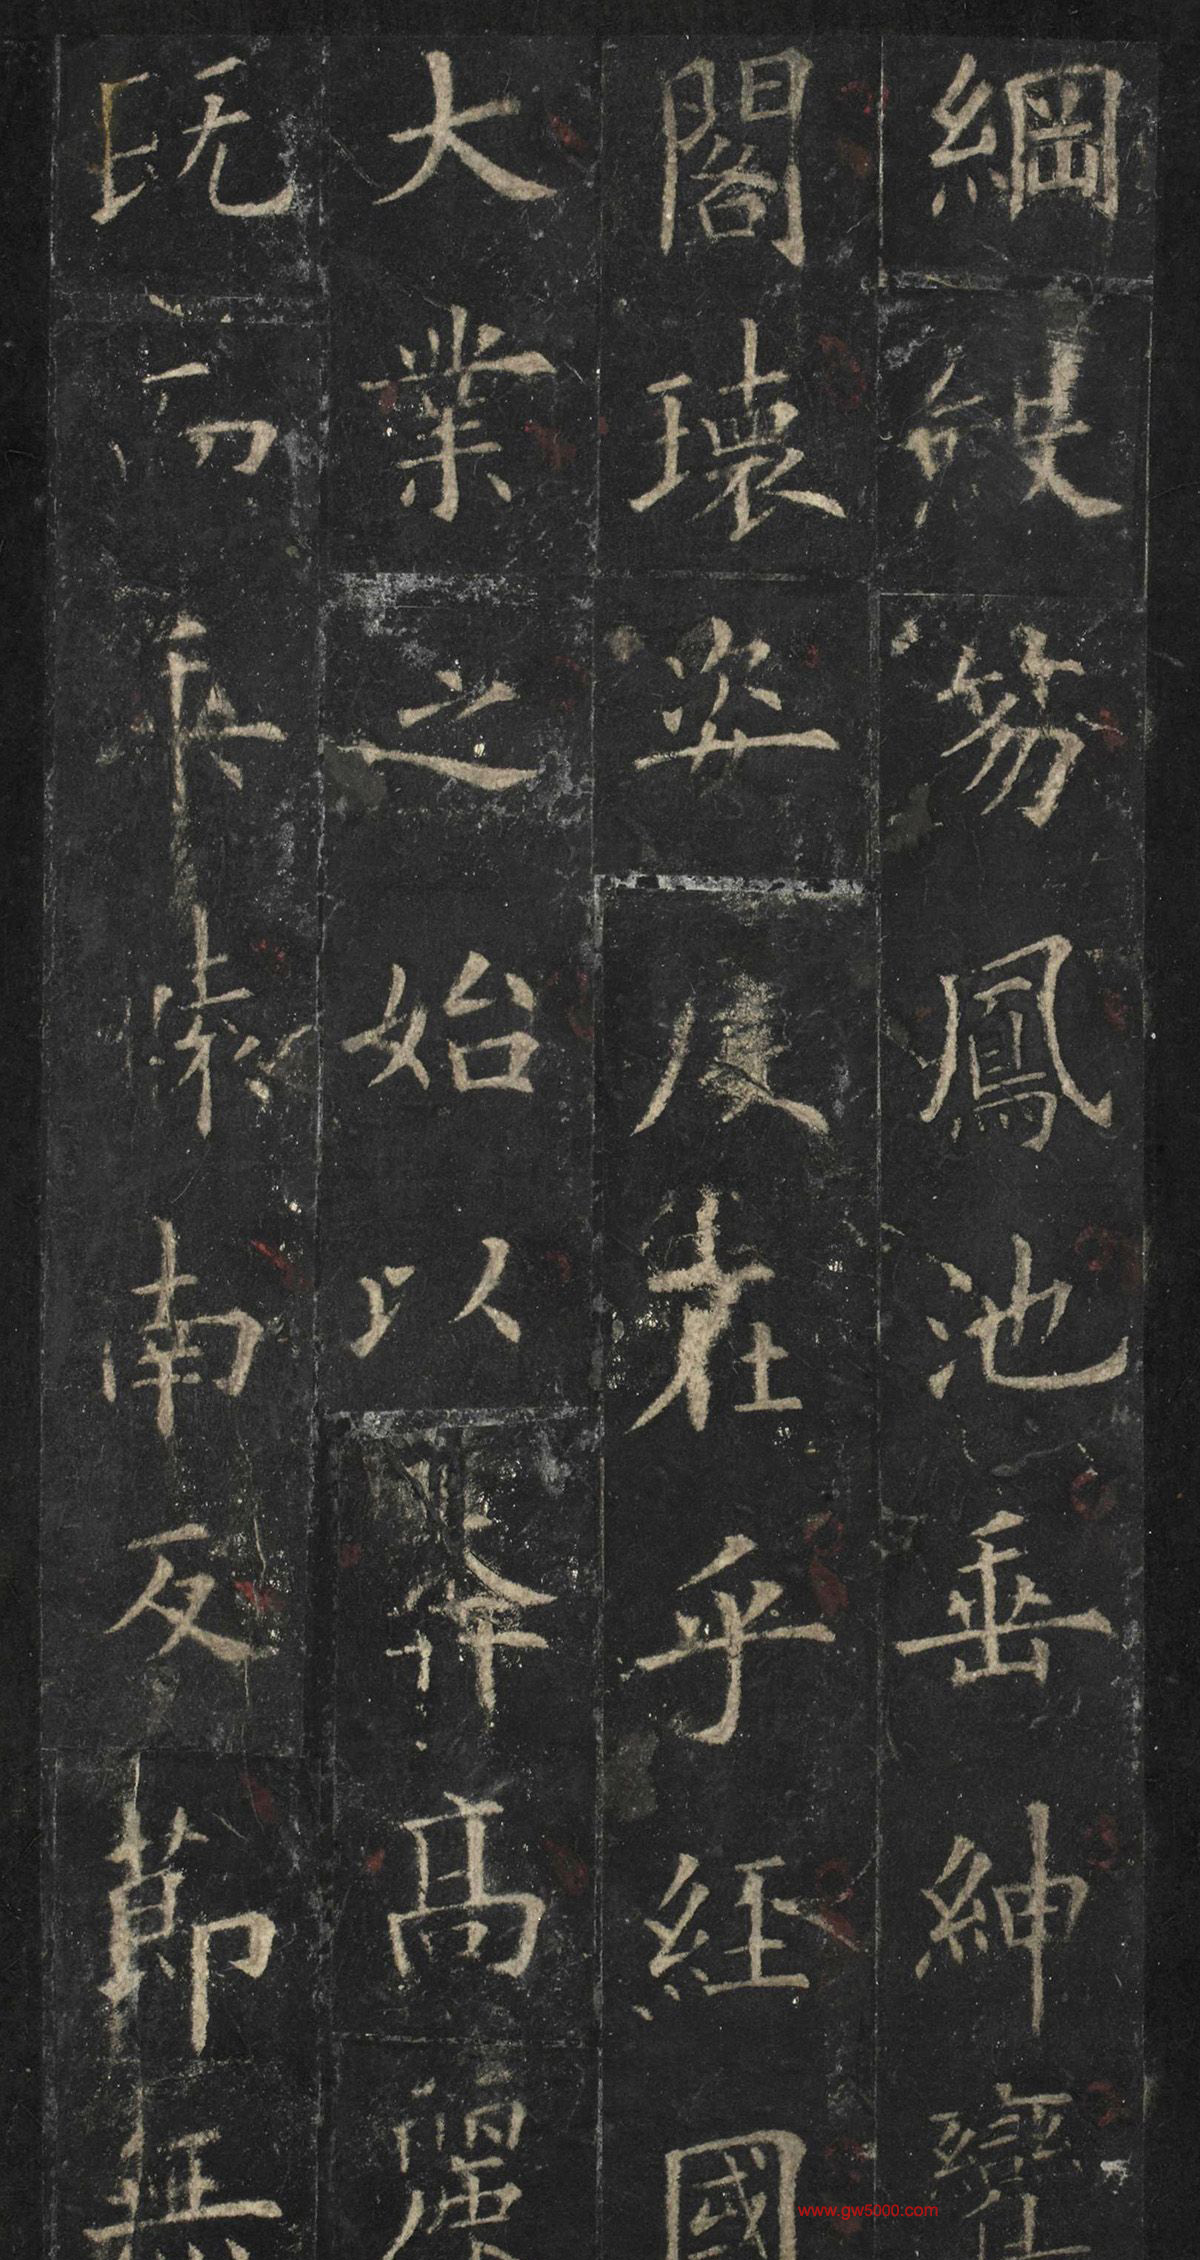 綱紱笏鳳池垂紳鸞
閣瓌姿度在乎經國
大業之始以高
既南反節無
www.gw5000.com